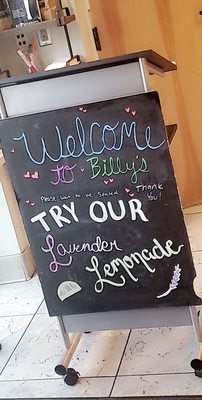 Welcome
to Billy's
Please wait to be seated Thank
You!
TRY OUR
Lavender
Lemonade